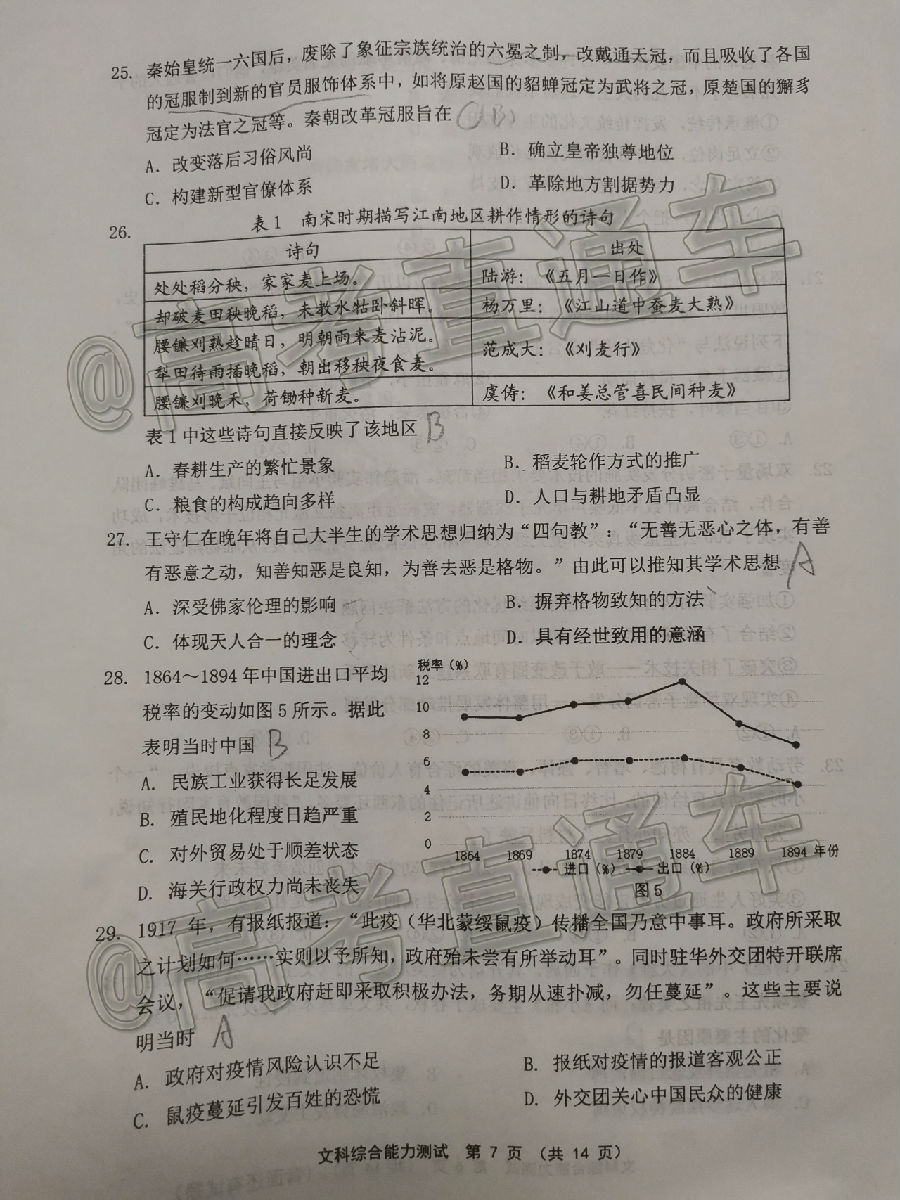 25. 秦始皇统一六国后，废除了象征宗族统治的六冕之制，改戴通天冠，而且吸收了各国
的冠服制到新的官员服饰体系中，如将原赵国的貂蝉冠定为武将之冠，原楚国的獬豸
冠定为法官之冠等。秦朝改革冠服旨在（ B ）
A. 改变落后习俗风尚 B. 确立皇帝独尊地位
C. 构建新型官僚体系 D. 革除地方割据势力
26. 表1 南宋时期描写江南地区耕作情形的诗句
诗句 出处
处处稻分秧，家家麦上场。 陆游：《五月一日作》
却破麦田秧晚稻，未教水牯卧斜晖。 杨万里：《江山道中蚕麦大熟》
腰镰刈熟趁晴日，明朝雨来麦沾泥。
犁田待雨插晚稻，朝出移秧夜食麦。 范成大：《刈麦行》
腰镰刈晚禾，荷锄种新麦。 虞俦：《和姜总管喜民间种麦》
表1中这些诗句直接反映了该地区 B
A. 春耕生产的繁忙景象 B. 稻麦轮作方式的推广
C. 粮食的构成趋向多样 D. 人口与耕地矛盾凸显
27. 王守仁在晚年将自己大半生的学术思想归纳为“四句教”：“无善无恶心之体，有善
有恶意之动，知善知恶是良知，为善去恶是格物。”由此可以推知其学术思想 A
A. 深受佛家伦理的影响 B. 摒弃格物致知的方法
C. 体现天人合一的理念 D. 具有经世致用的意涵
28. 1864～1894年中国进出口平均
税率的变动如图5所示。据此
表明当时中国 B
A. 民族工业获得长足发展
B. 殖民地化程度日趋严重
C. 对外贸易处于顺差状态
D. 海关行政权力尚未丧失
税率（%）
12
10
8
6
4
2
0
1864 1869 1874 1879 1884 1889 1894 年份
进口（%） 出口（%）
图5
29. 1917 年，有报纸报道：“此疫（华北蒙绥鼠疫）传播全国乃意中事耳。政府所采取
之计划如何……实则以予所知，政府殆未尝有所举动耳”。同时驻华外交团特开联席
会议，“促请我政府赶即采取积极办法，务期从速扑减，勿任蔓延”。这些主要说
明当时 A
A. 政府对疫情风险认识不足 B. 报纸对疫情的报道客观公正
C. 鼠疫蔓延引发百姓的恐慌 D. 外交团关心中国民众的健康
文科综合能力测试 第 7 页 （共 14 页）
@高考直通车
@高考直通车